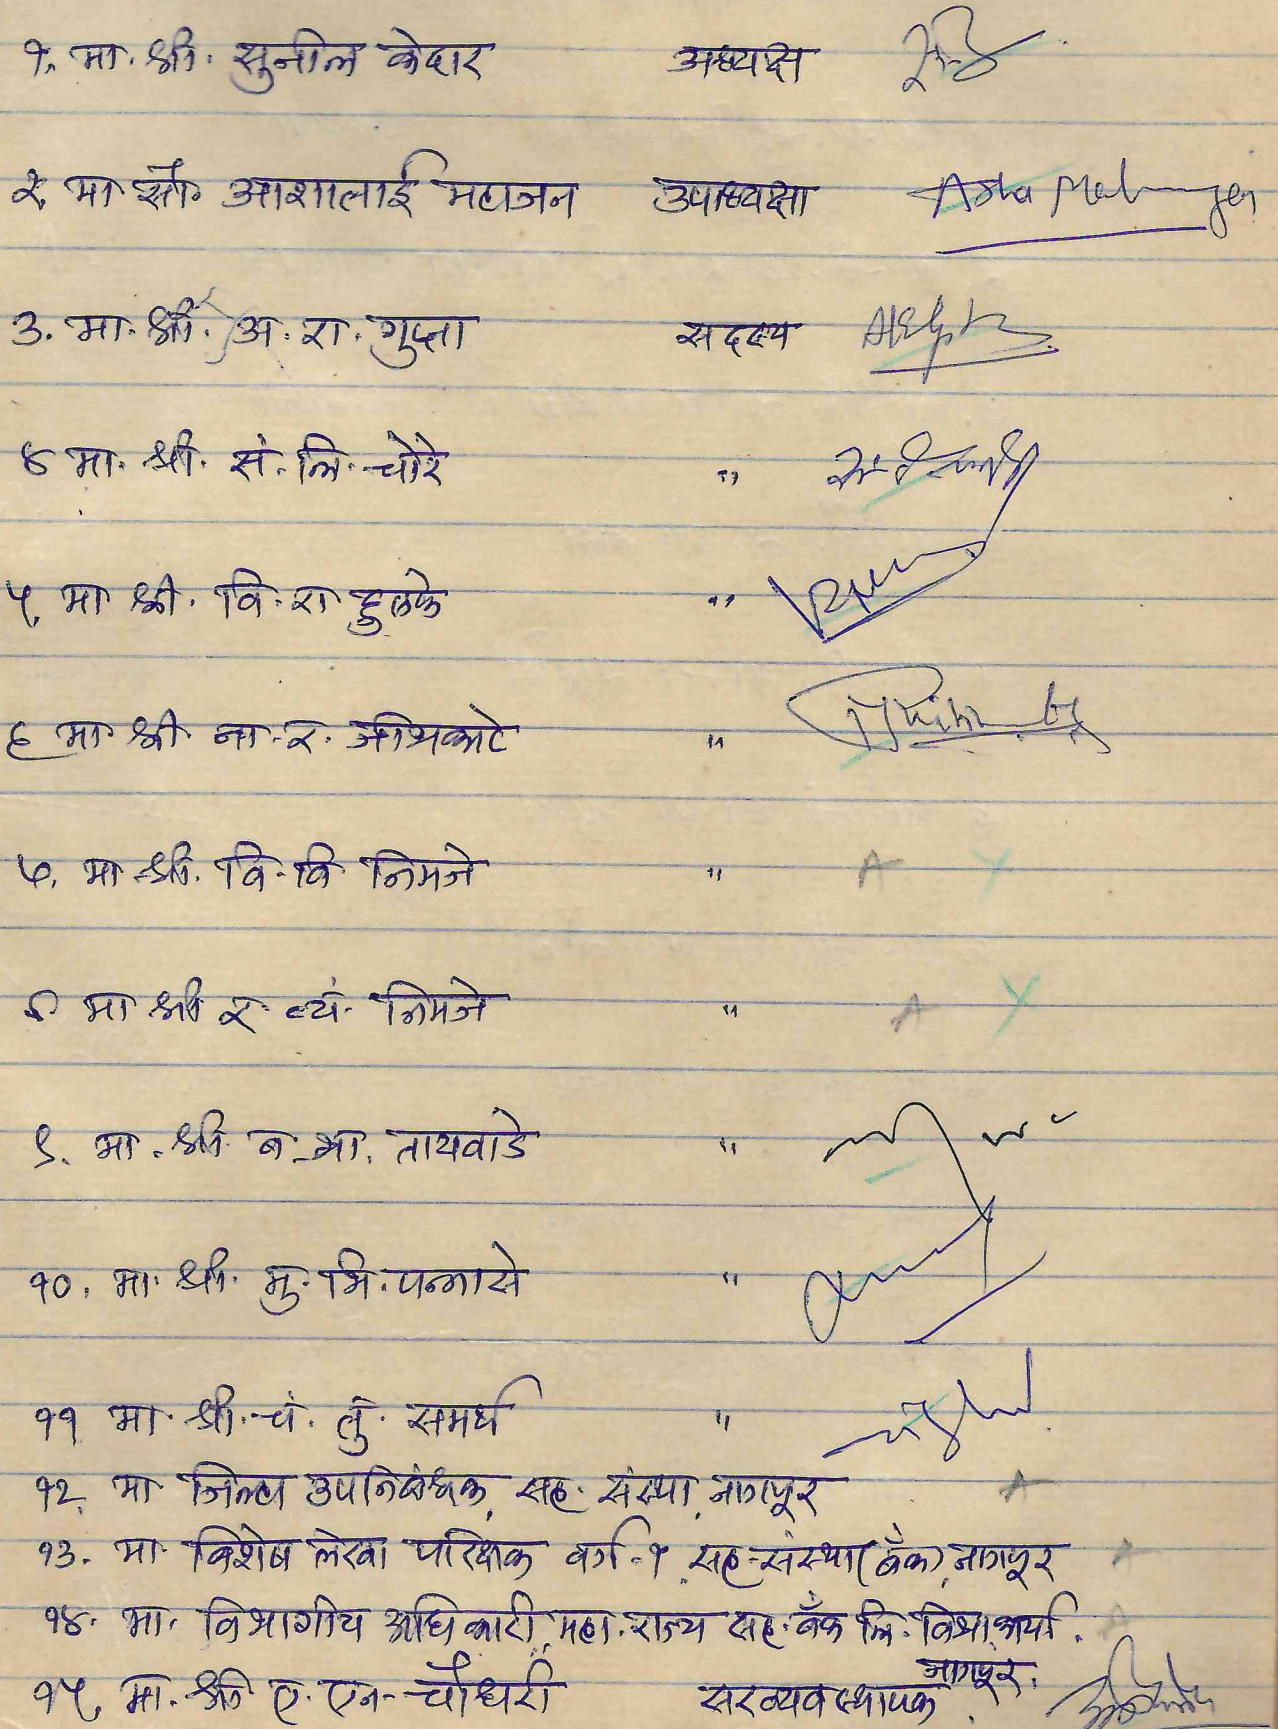 १. मा. श्री. सुनील केदार अध्यक्ष
२. मा सौ. आशाताई महाजन उपाध्यक्षा Asha Mahajan
३. मा. श्री. अ. रा. गुप्ता सदस्य
४ मा. श्री. सं. लि. चोरे "
५. मा श्री. वि. रा हुलके "
६ मा श्री ना. र. "
७. मा. श्री. वि. वि निमजे " A
८ मा श्री र. व्यं. निमजे " A
९. मा. श्री. ब. भा. तायवाडे "
१०. मा. श्री. मु. भि. पन्नासे "
११ मा. श्री. चं. तु. समर्थ "
१२. मा जिल्हा उपनिबंधक, सह. संस्था, नागपूर A
१३. मा. विशेष लेखा परिक्षक वर्ग-१ सह. संस्था (बँक), नागपूर A
१४. मा. विभागीय अधिकारी, महा. राज्य सह. बँक लि. विभा. कार्या. A
नागपूर.
१५. मा. श्री ए. एन. चौधरी सरव्यवस्थापक.